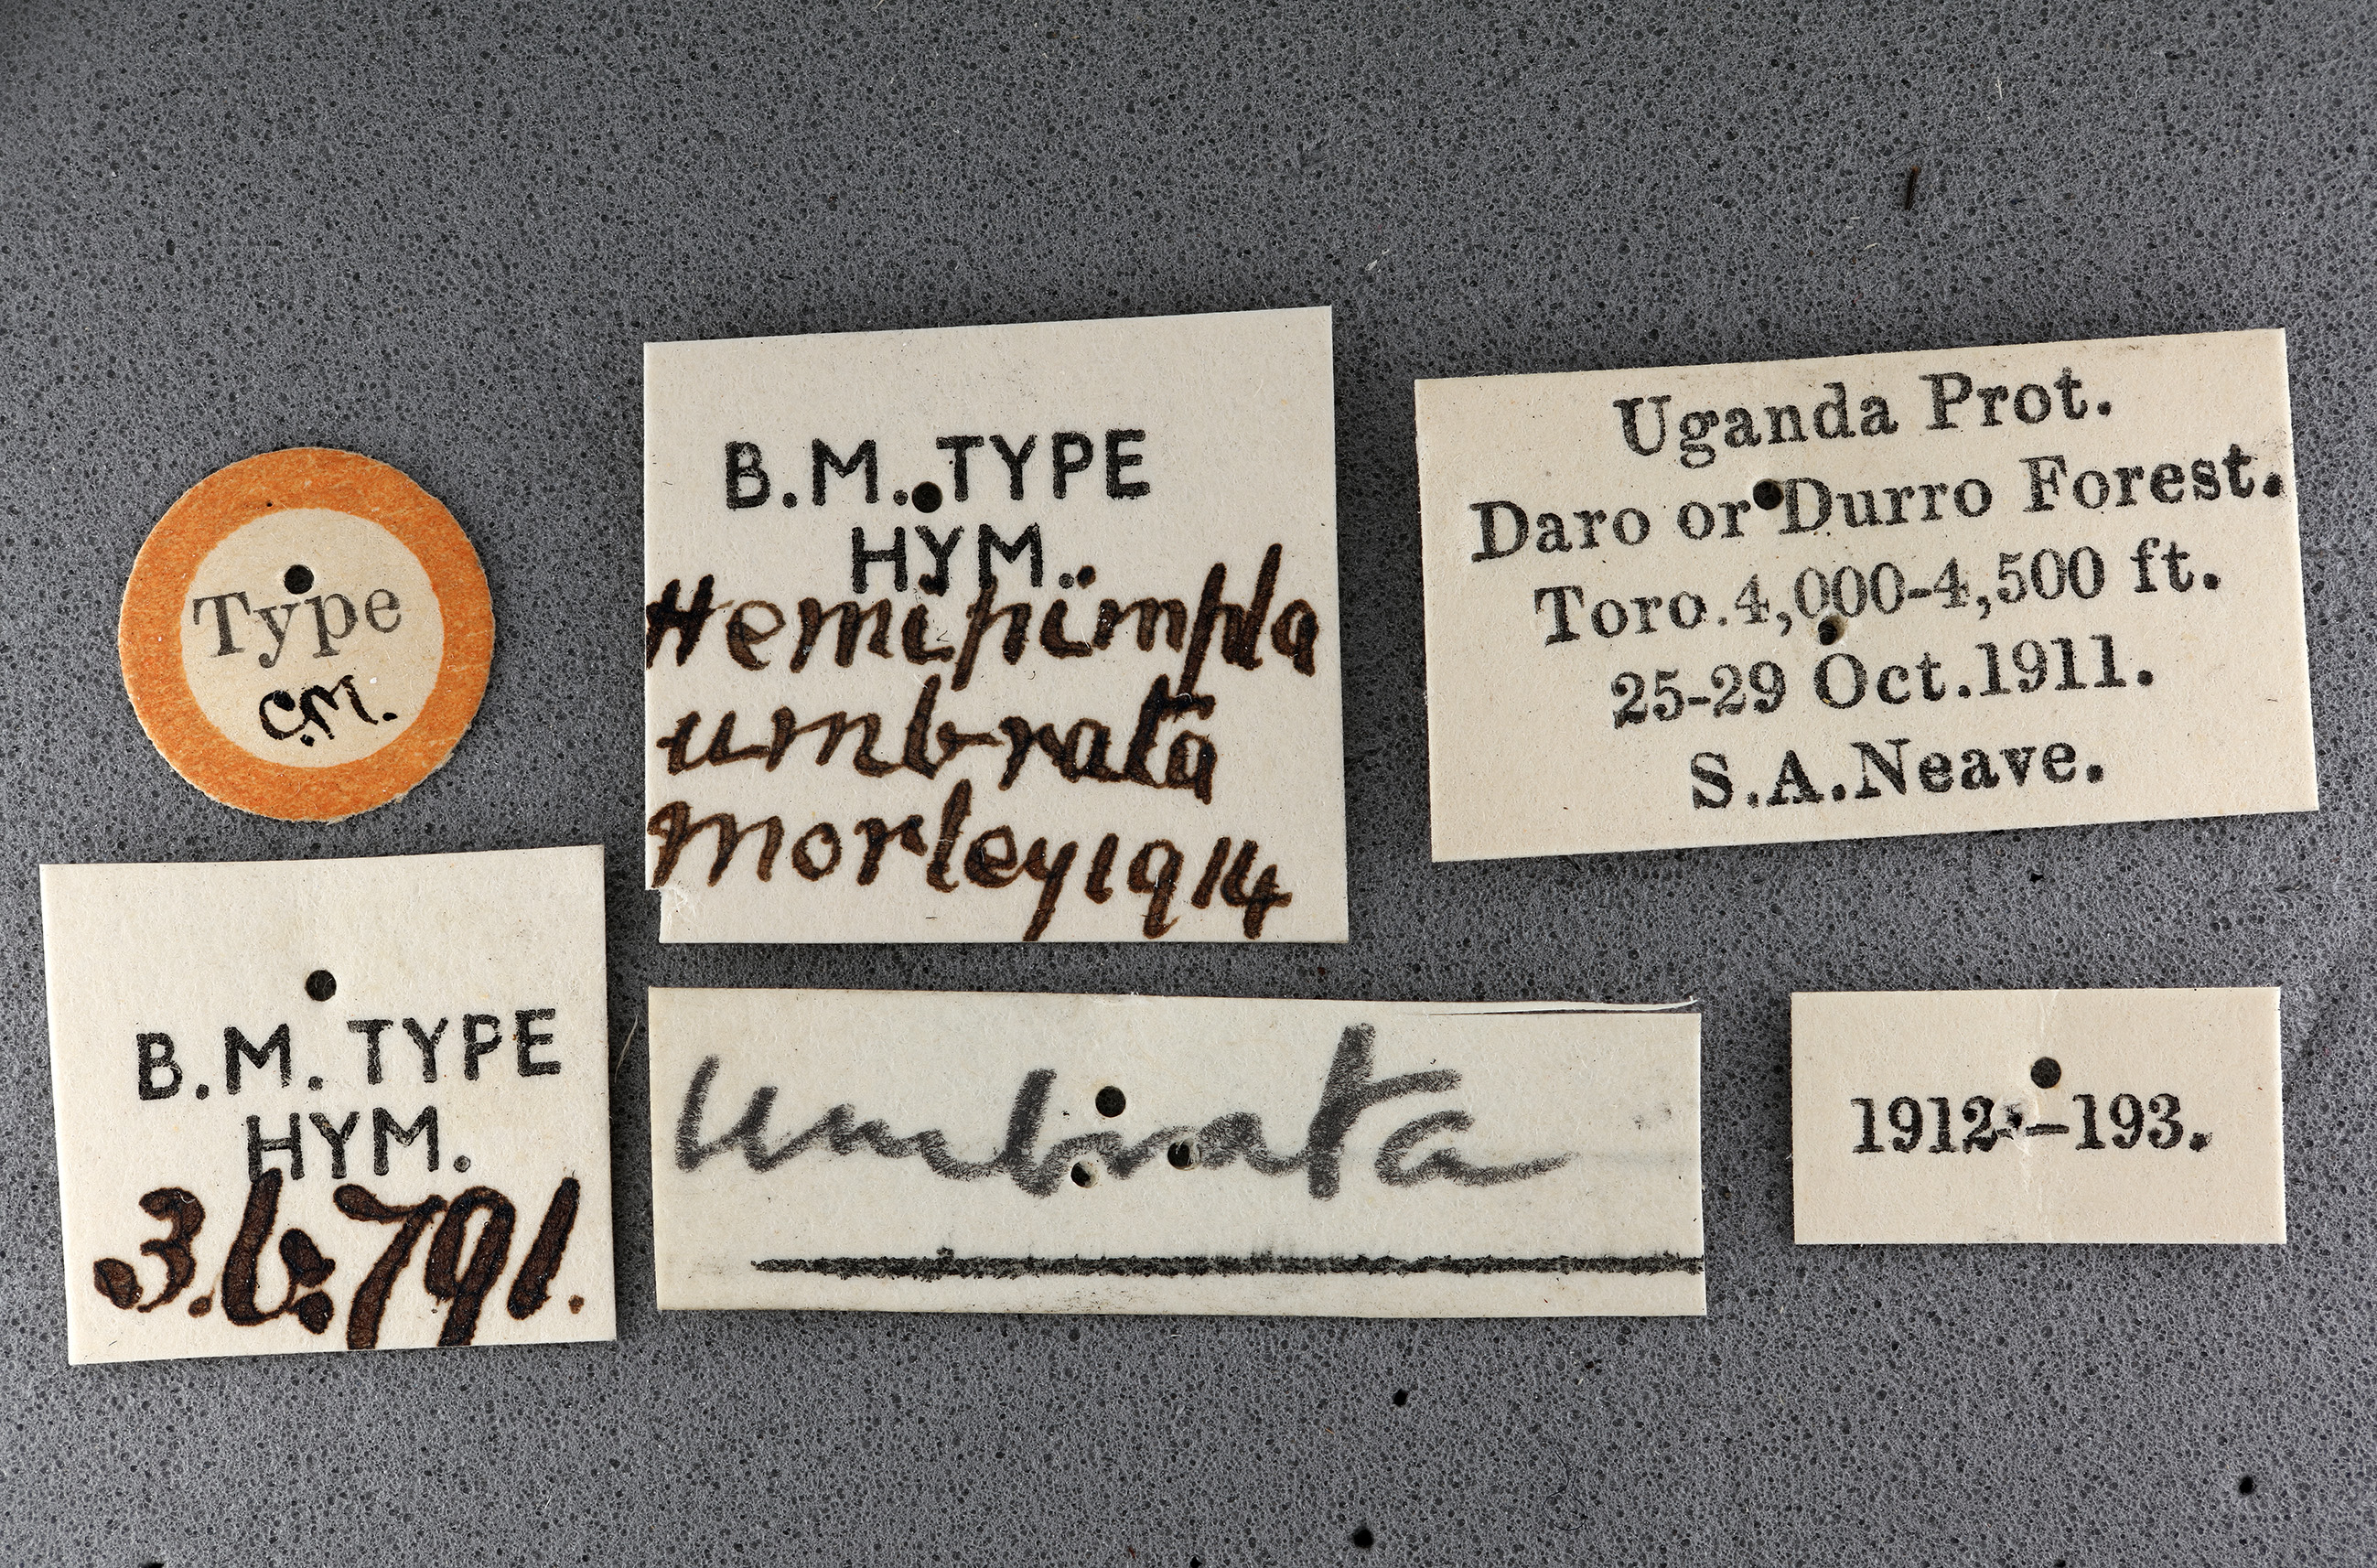 Type
C.M.
B.M. TYPE
HYM.
Hemipimpla
umbrata
Morley 1914
Uganda Prot.
Daro or Durro Forest.
Toro. 4,000-4,500 ft.
25-29 Oct. 1911.
S.A. Neave.
B.M. TYPE
HYM.
3.b.791.
umbrata
1912.-193.